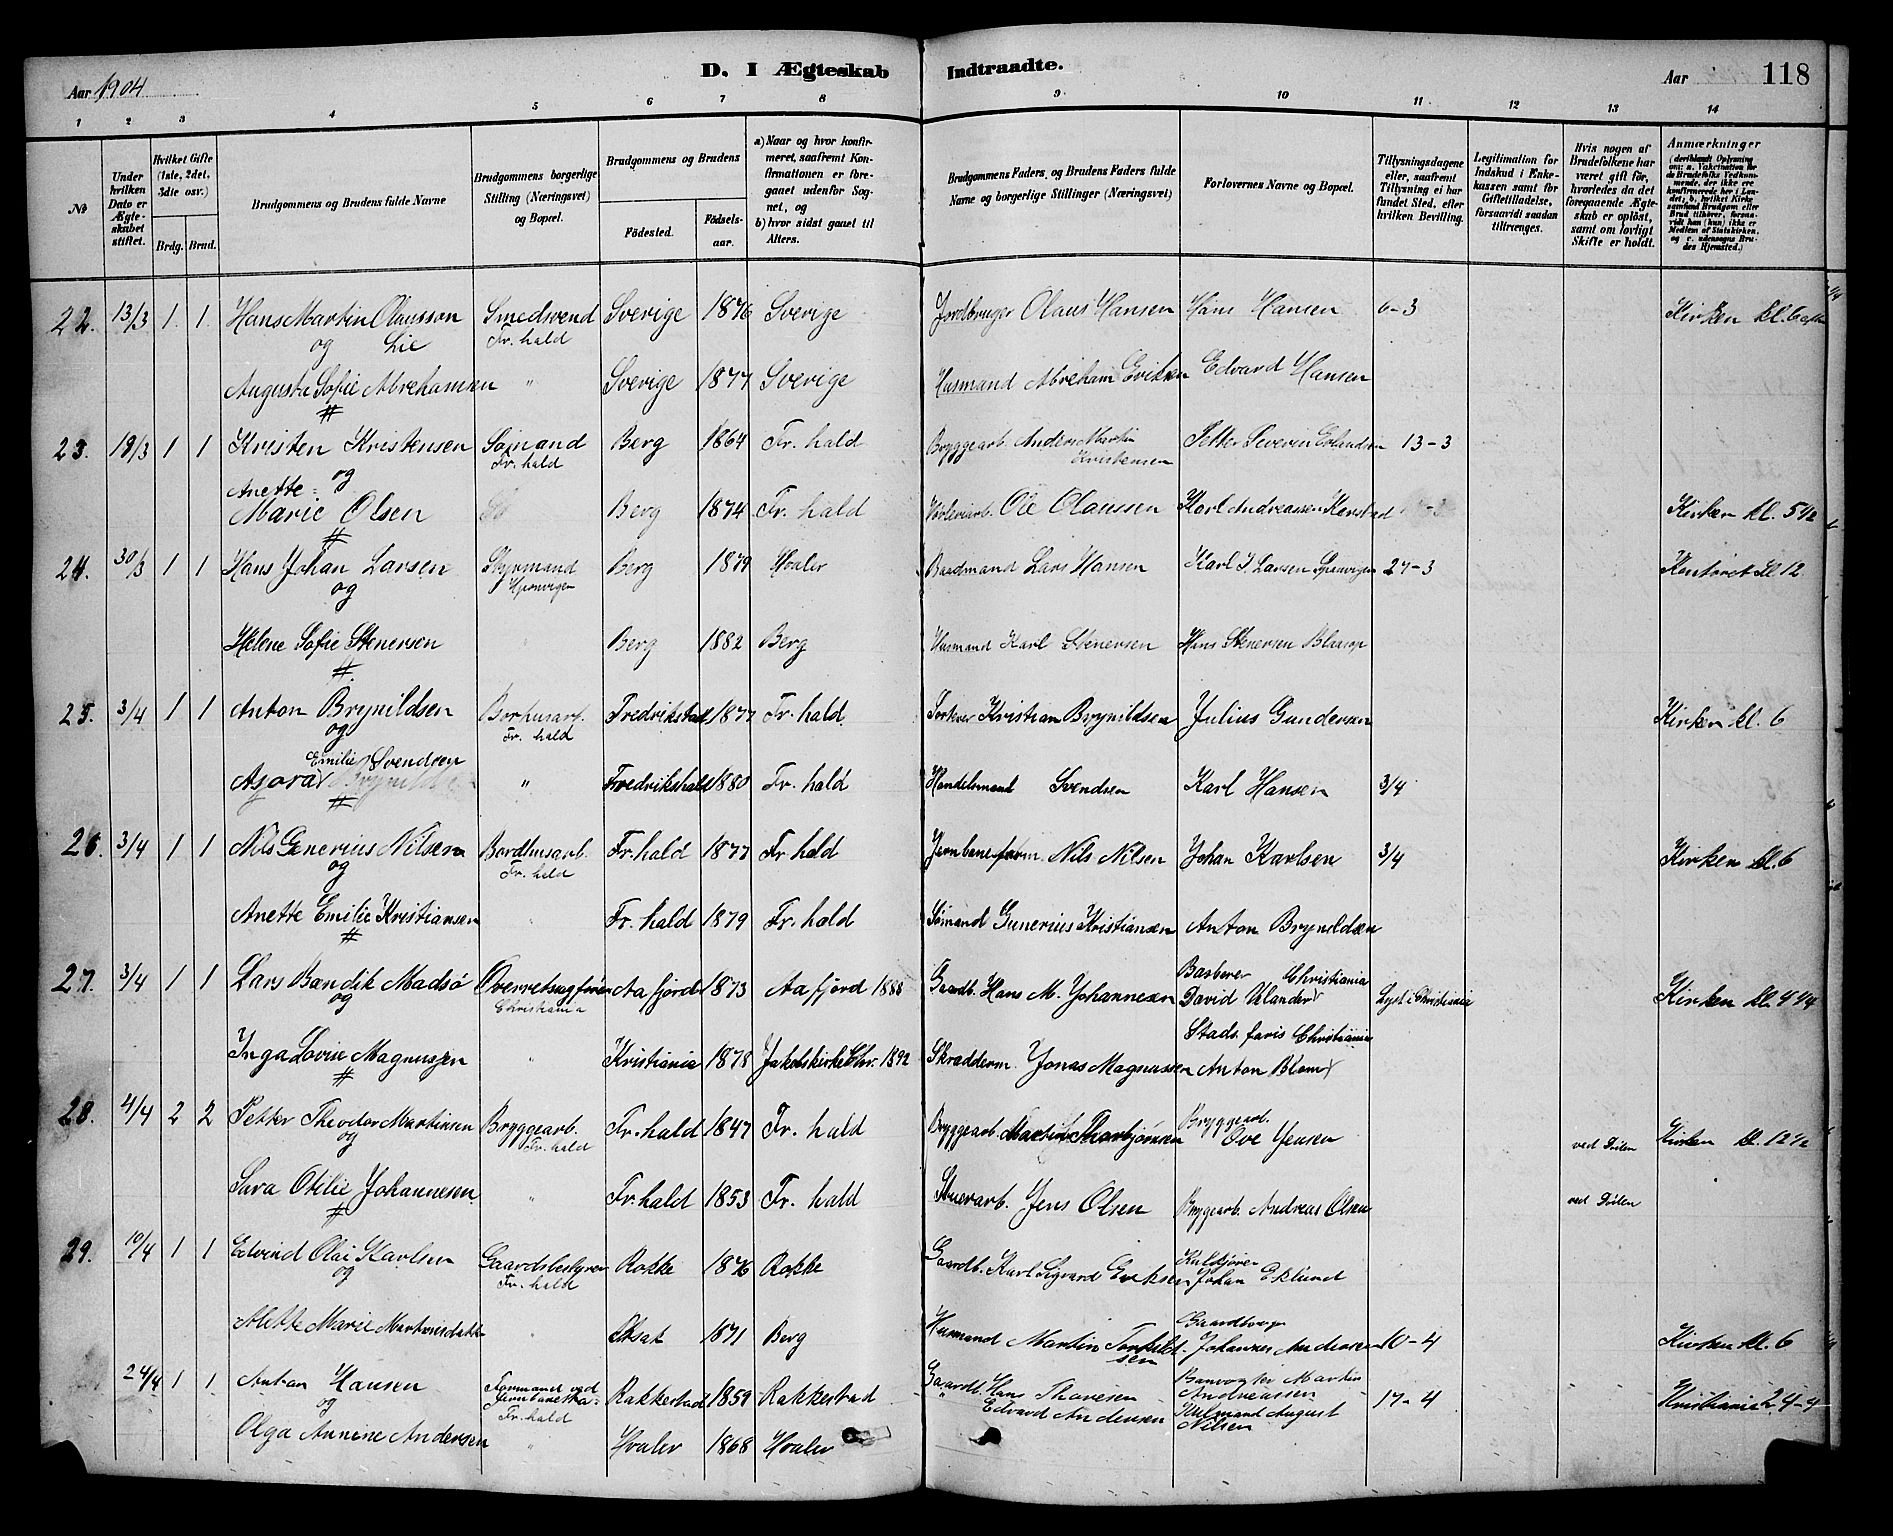 Aar 1904
D. I Ægteskab
Indtraadte.
Aar
118
1 2 3 4 5 6 7 8 9 10 11 12 13 14
№
Under hvilken Dato er Ægteskabet stiftet.
Hvilket Gifte (1ste, 2det, 3die osv.)
Brdg. Brud.
Brudgommens og Brudens fulde Navne
Brudgommens borgerlige Stilling (Næringsvei) og Bopæl.
Brudgommens og Brudens
Födested.
Födselsaar.
a) Naar og hvor konfirmeret, saafremt Konfirmationen er foregaaet udenfor Sognet, og
b) hvor sidst gaaet til Alters.
Brudgommens Faders og Brudens Faders fulde Navne og borgerlige Stillinger (Næringsvei)
Forlovernes Navne og Bopæl.
Tillysningsdagene eller, saafremt Tillysning ei har fundet Sted, efter hvilken Bevilling.
Legitimation for Indskud i Enkekassen samt for Giftetilladelse, forsaavidt saadan tiltrænges.
Hvis nogen af Brudefolkene har været gift för, hvorledes da det foregaaende Ægteskab er oplöst, samt om lovligt Skifte er holdt.
Anmærkninger
22. 13/3 1. 1. Hans Martin Olausson Smedsvend Sverige 1876 Sverige Jordbruger Olaus Hansen Hans Hansen 6-3 Kirken kl. 6
og Lie Fr. hald
Augusta Sofie Abrehamsen " Sverige 1877 Sverige Husmand Abreham Eriksen Edvard Hansen
23. 18/3 1 1 Kristen Kristensen Sømand Berg 1864 Fr. hald Bryggearb. Anders Martin Kristensen Petter Severin Erlandsen 13-3
og Fr. hald
Anette Marie Olsen Berg 1874 Fr. hald Ole Olaussen Karl Andreassen Kirken kl. 5 1/2
24. 30/3 1 1 Hans Johan Larsen Styrmand Berg 1879 Hvaler Baadmand Lars Hansen Karl J. Larsen Sponvigen 27-3 Kontoret kl 12
og Sponvigen
Helene Sofie Stenersen " Berg 1882 Berg Husmand Karl Stenersen Hans Stenersen
25. 3/4 1 1 Anton Brynildsen Fredrikstad 1877 Fr. hald Kristian Brynildsen Julius Gundersen Kirken kl. 6
og Fr. hald
Emilie Svendsen
Asora " Fredrikshald 1880 Fr. hald Handelsmand Svendsen Karl Hansen 3/4
26. 3/4 1 1 Nils Generius Nilsen Bordhusarb. Fr. hald 1877 Fr. hald Jernbaneform. Nils Nilsen Johan Karlsen 3/4 Kirken kl. 6
og Fr. hald
Anette Emilie Kristiansen " Fr. hald 1879 Fr. hald Sømand Gunerius Kristiansen Anton Brynildsen
27. 3/4 1 1 Lars Bendik Madsø Overretssagfører Aafjord 1873 Aafjord 1888 Gaardb. Hans M. Johannesen Barberer Christiania David Ulander Lyst i Christiania Kirken kl. 4 1/4
og Christiania
Inga Lovise Magnussen " Kristiania 1878 Jakobskirke Chr. 1892 Skradderm. Jonas Magnussen Christiania Anton Blom
28. 4/4 2 2 Petter Theodor Martinsen Bryggearb. Fr. hald 1847 Fr. hald Bryggearb. Martin Thorbjørnsen Bryggearb. Ove Jensen ved Døden Kirken kl. 12 1/2
og Fr. hald
Sara Otilie Johannesen " Fr. hald 1853 Fr. hald Stuerarb. Jens Olsen Bryggearb. Andreas Olsen ved Døden
29. 10/4 1 1 Edvind Olai Karlsen Gaardsbestyrer Rokke 1876 Rokke Gaardb. Karl Sigvard Eriksen Kulkjører Johan Eklund
og Fr. hald
Alette Marie Martinsdatter " 1871 Berg Husmand Martin Torkildsen Gaardbruger Johannes Andersen 10-4 Kirken kl. 6
24/4 1 1 Anton Hansen Formand ved Rakkestad 1859 Rakkestad Gaardb. Hans Thoresen Banvogter Martin Andreassen 17-4 Kristiania 24-4
og Fr. hald
Olga Annine Andersen " Hvaler 1868 Hvaler Edvard Andersen August Nilsen